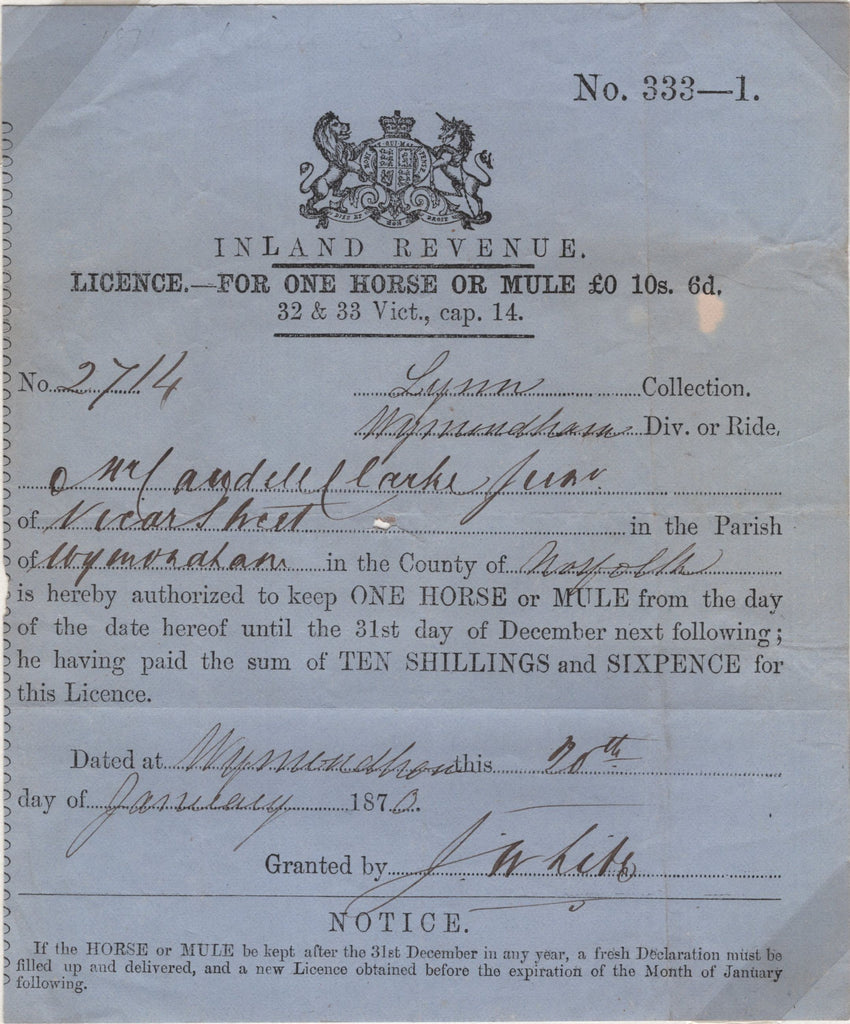 No. 333—1.
INLAND REVENUE.
LICENCE.—FOR ONE HORSE OR MULE £0 10s. 6d.
32 & 33 Vict., cap. 14.
No. 2714 Lynn Collection.
Wymondham Div. or Ride,
Mr Clarke Junr
of Vicar Street in the Parish
of Wymondham in the County of Norfolk
is hereby authorized to keep ONE HORSE or MULE from the day
of the date hereof until the 31st day of December next following;
he having paid the sum of TEN SHILLINGS and SIXPENCE for
this Licence.
Dated at Wymondham this 20th
day of January 1873.
Granted by J. White
NOTICE.
If the HORSE or MULE be kept after the 31st December in any year, a fresh Declaration must be
filled up and delivered, and a new Licence obtained before the expiration of the Month of January
following.